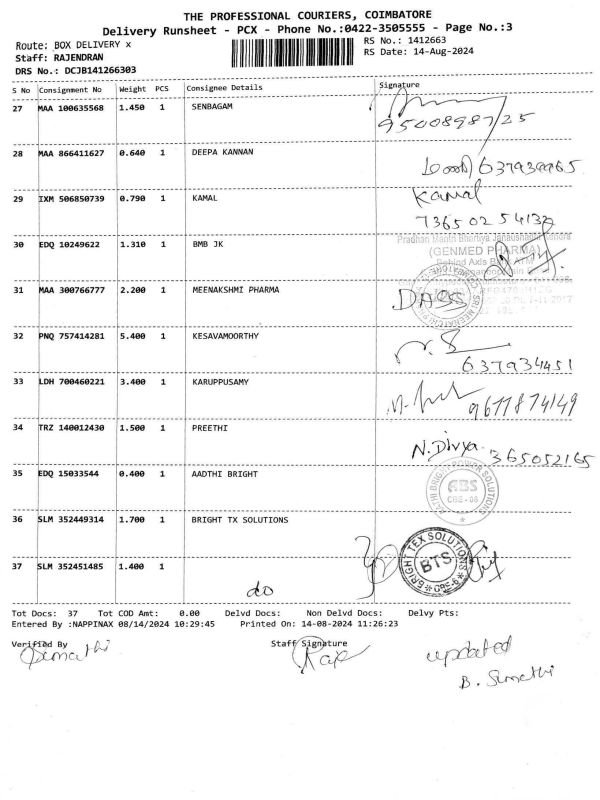 THE PROFESSIONAL COURIERS, COIMBATORE
Delivery Runsheet - PCX - Phone No.:0422-3505555 - Page No.:3
Route: BOX DELIVERY x
RS No.: 1412663
Staff: RAJENDRAN
RS Date: 14-Aug-2024
DRS No.: DCJB141266303
S No Consignment No Weight PCS Consignee Details Signature
27 MAA 100635568 1.450 1 SENBAGAM
9500898725
28 MAA 866411627 0.640 1 DEEPA KANNAN
29 IXM 506850739 0.790 1 KAMAL Kamal
30 EDQ 10249622 1.310 1 BMB JK
(GENMED PHARMA)
31 MAA 300766777 2.200 1 MEENAKSHMI PHARMA
32 PNQ 757414281 5.400 1 KESAVAMOORTHY
637934451
33 LDH 700460221 3.400 1 KARUPPUSAMY
9677874149
34 TRZ 140012430 1.500 1 PREETHI
N.Divya 365052165
35 EDQ 15033544 0.400 1 AADTHI BRIGHT
ABS
36 SLM 352449314 1.700 1 BRIGHT TX SOLUTIONS
BRIGHT TEX SOLUTIONS
BTS
37 SLM 352451485 1.400 1
do
Tot Docs: 37 Tot COD Amt: 0.00 Delvd Docs: Non Delvd Docs: Delvy Pts:
Entered By :NAPPINAX 08/14/2024 10:29:45 Printed On: 14-08-2024 11:26:23
Verified By Staff Signature
updated
B. Sumathi